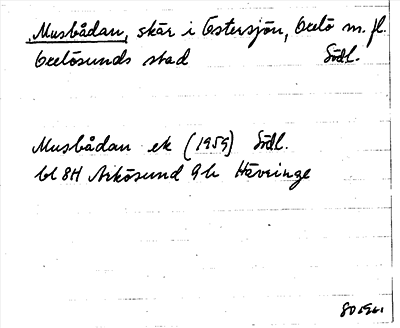 Musbådan, skär i Östersjön, Oxelö m. fl.
Oxelösunds stad Södl.
Musbådan ek (1959) Södl.
bl 8H Arkösund 9h Hävringe